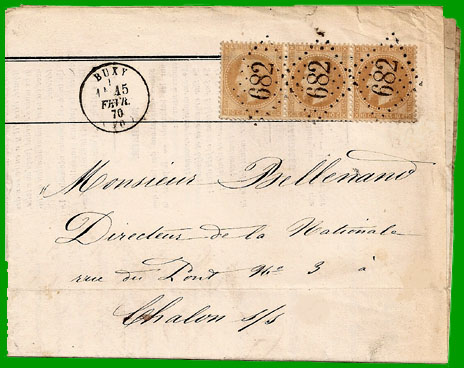 BUXY
15
FEVR.
70
682 682 682
Monsieur Bellenand
Directeur de la Nationale
rue du Pont No 3 à
Chalon s/s